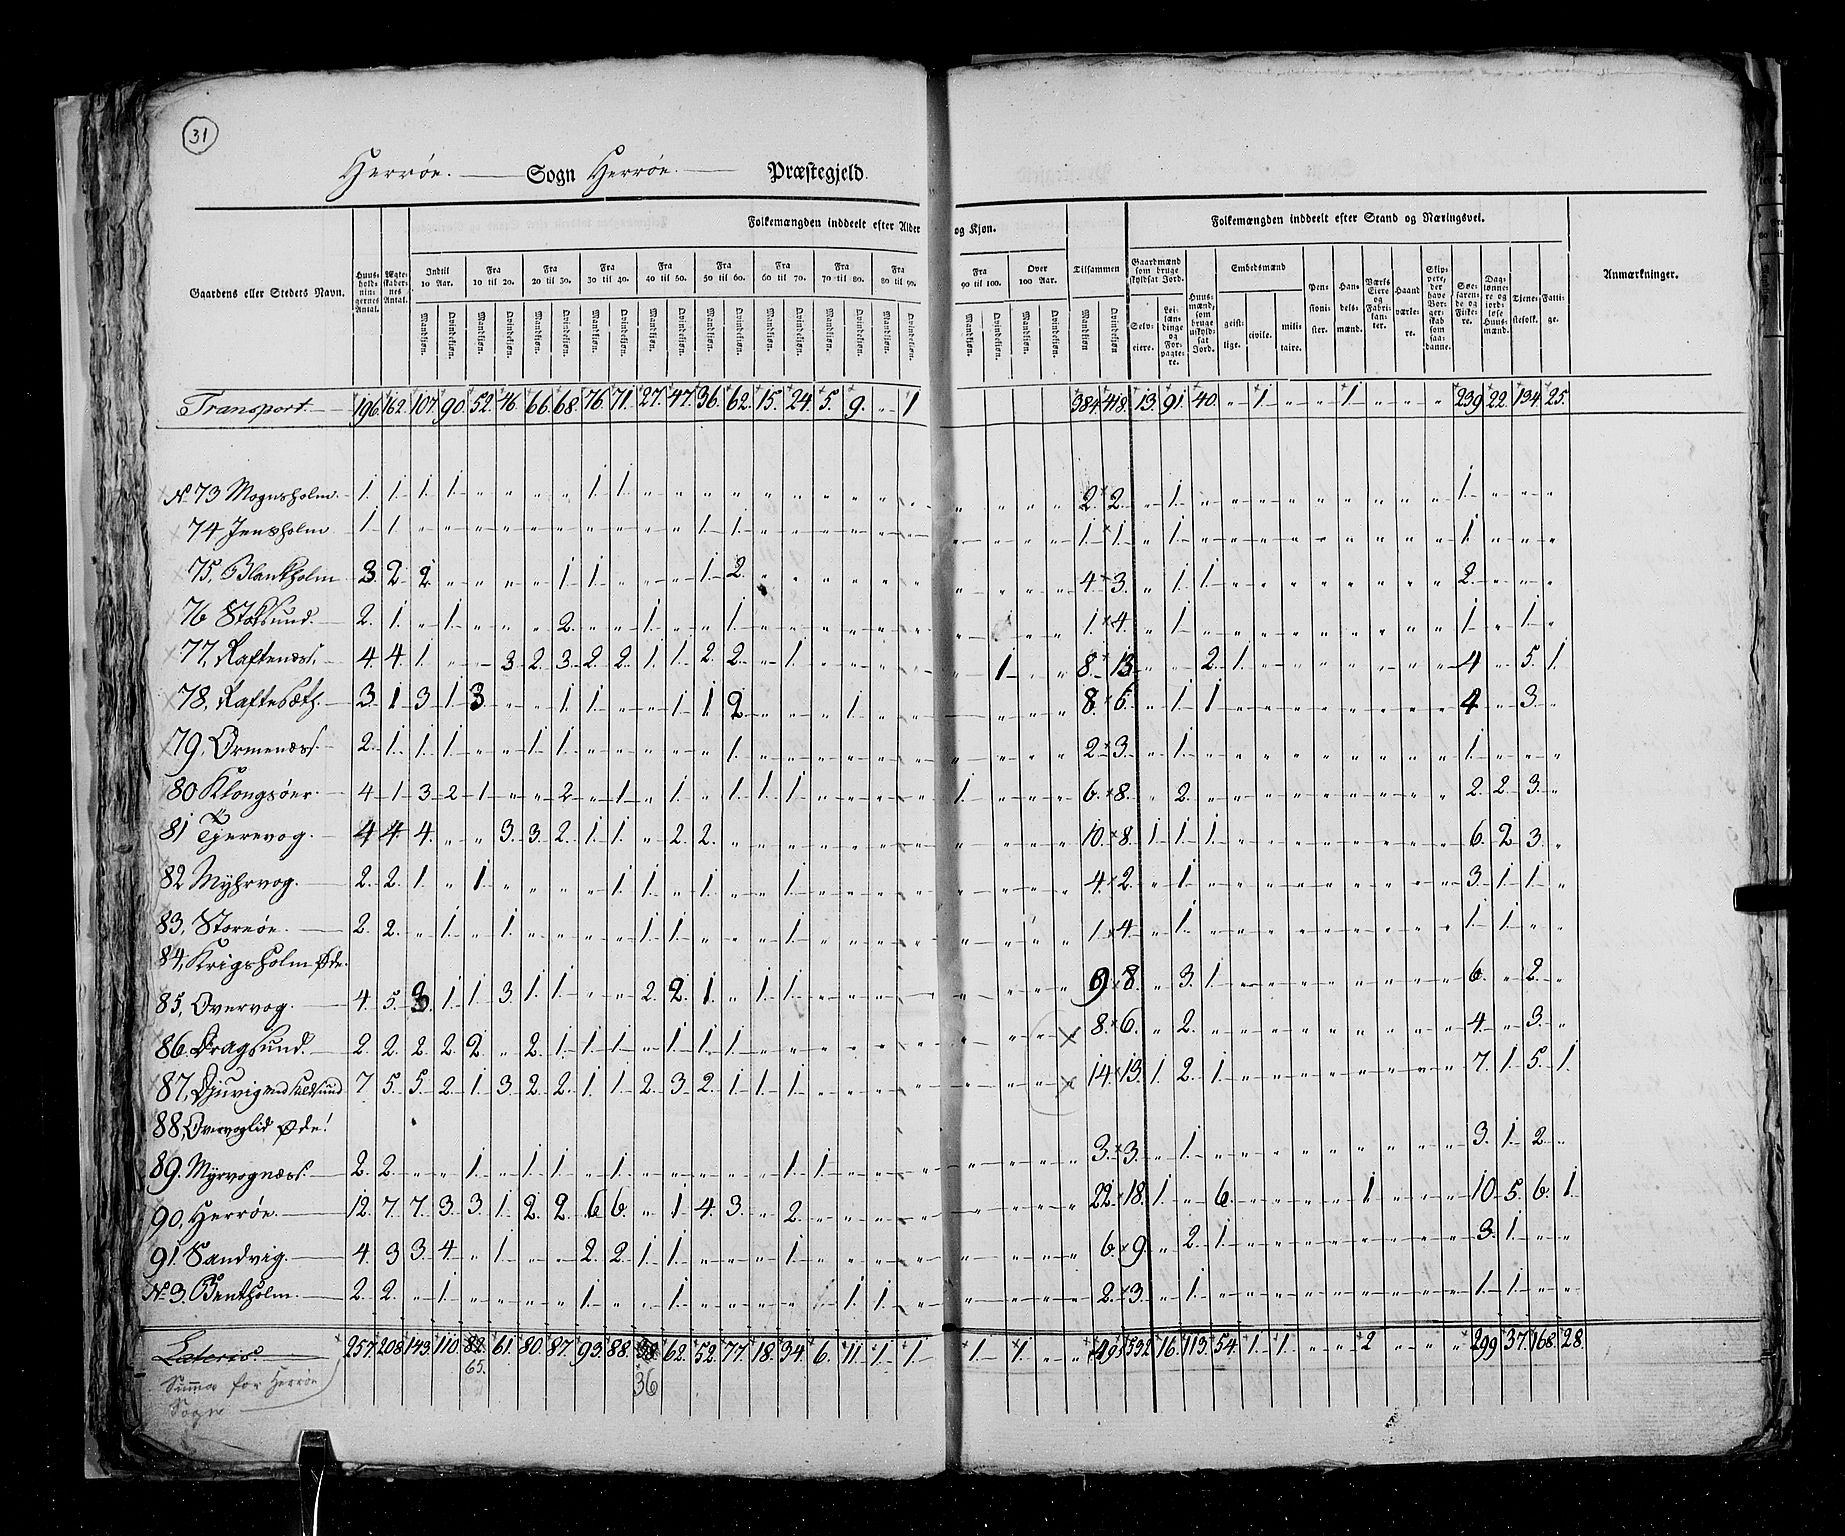 31
Herrøe. Sogn Herrøe. Præstegjeld.
Gaardens eller Stedets Navn. Huus-holdnin-gernes Antal. Ægte-skaber-nes Antal. Folkemængden inddeelt efter Alder og Kjøn. Tilsammen Folkemængden inddeelt efter Stand og Næringsvei. Anmærkninger.
Indtil 10 Aar. Fra 10 til 20. Fra 20 til 30. Fra 30 til 40. Fra 40 til 50. Fra 50 til 60. Fra 60 til 70. Fra 70 til 80. Fra 80 til 90. Fra 90 til 100. Over 100 Aar.
Mandkjøn. Qvindekjøn.
Gaardmænd som bruge skyldsat Jord. Selveiere. Leilændinge og Forpagtere. Huusmænd, som bruge uskyldsat Jord. Embedsmænd geistlige. civile. militaire. Pensionister. Handelsmænd. Værks Eiere og Fabrikanter. Haandværkere. Skippere, der have Borgerskab som saadanne. Søefarende og Fiskere. Daglønnere og jordløse Huusmænd. Tjenestefolk. Fattige.
Transport 196. 162. 107. 90. 52. 46. 66. 68. 76. 71. 27. 47. 36. 62. 15. 24. 5. 9. " 1 384. 418. 13. 91. 40. " 1. " " 1. " " " 239. 22. 134. 25.
No 73 Mognsholm. 1. 1. 1. 1. " " " " 1. 1. " " " " " " " " " " " " " " 2. 2. " 1. " " " " " " " " " 1. " " "
74 Jensholm 1. 1. " " " " " " " " " " 1. 1. " " " " " " " " " " 1. 1. " 1. " " " " " " " " " 1. " " "
75. Blankholm 3. 2. 2. " " " " 1. 1. " " " 1. 2. " " " " " " " " " " 4. 3. " 1. 1. " " " " " " " " 2. " " "
76 Stoksund. 2. 1. " 1. " " " 2. " " 1. " " 1. " " " " " " " " " " 1. 4. " 1. " " " " " " " " " 1. " 1. "
77. Raftenæss. 4. 4. 1. " " 3. 2. 3. 2. 2. 1. 1. 2. 2. " 1. " " " " " 1. " " 8. 13. " " 2. 1. " " " " " " " 4. " 5. 1.
78. Raftesæth. 3. 1. 3. 1. 3. " " 1. 1. " " 1. 1. 2. " " " 1. " " " " " " 8. 6. " 1. 1. " " " " " " " " 4. " 3. "
79. Ormenæss. 2. 1. 1. 1. " " 1. 1. " " " " " 1. " " " " " " " " " " 2. 3. " 1. " " " " " " " " " 1. " " "
80 Klongsøer. 4. 1. 3. 2. 1. " " 2. " 1. " 1. " 1. 1. 1. " " " " 1. " " " 6. 8. " 2. " " " " " " " " " 2. 2. 3. "
81 Tjerevog. 4. 4. 4. " " 3. 3. 2. 1. 1. " 2. 2. " " " " " " " " " " " 10. 8. 1. 1. 1. " " " " " " " " 6. 2. 3. "
82 Myhrvog. 2. 2. 1. " 1. " " " " 1. 1. " 1. " " 1. " " " " " " " " 4. 2. " 1. " " " " " " " " " 3. 1. 1. "
83. Storøe. 2. 2. " 1. " 1. " " " " 1. 1. " " " 1. " " " " " " " " 1. 4. " 1. " " " " " " " " " 1. 1. " "
84. Krigsholm Øde.
85. Overvog. 4. 5. 3. 1. 1. 3. 1. 1. " " 2. 2. 1. " 1. 1. " " " " " " " " 9. 8. " 3. 1. " " " " " " " " 6. " 2. "
86. Dragsund. 2. 2. 2. 2. 2. " 2. 1. 1. 1. " 1. 1. 1. " " " " " " " " " " 8. 6. " 2. " " " " " " " " " 4. " 3. "
87. Djuvig med Kildsund 7. 5. 5. 2. 1. 3. 2. 2. 1. 1. 2. 3. 2. 1. 1. 1. " " " " " " " " 14. 13. 1. 2. 1. " " " " " " " " 7. 1. 5. 1.
88. Overvoglid Øde!
89. Myrvognæss. 2. 2. " " 1. " 1. 1. " 1. " " " " " 1. 1. " " " " " " " 3. 3. " 1. " " " " " " " " " 3. 1. 2. "
90. Herrøe. 12. 7. 7. 3. 3. 1. 2. 2. 6. 6. " 1. 4. 3. " 2. " " " " " " " " 22. 18. 1. " 6. " " " " 1. " " " 10. 5. 6. 1.
91. Sandvig. 4. 3. 3. 4. " 1. " " 2. 2. 1. 1. " " " 1. " " " " " " " " 6. 9. " 2. 1. " " " " " " " " 3. 1. " "
No 3. Bentholm. 2. 2. " 1. " " " " 1. " " 1. " " " " " 1. 1. " " " " " 2. 3. " 1. " " " " " " " " " 1. 1. " "
Lateris. 257. 208. 143. 110. 82. 61. 80. 87. 93. 88. 62. 52. 77. 18. 34. 6. 11. 1. 1. 1. 1. " " 495. 532. 16. 113. 54. 1. 1. " " 2 " " " 299. 37. 168. 28.
65. 36
Summa for Herrøe
Sogn